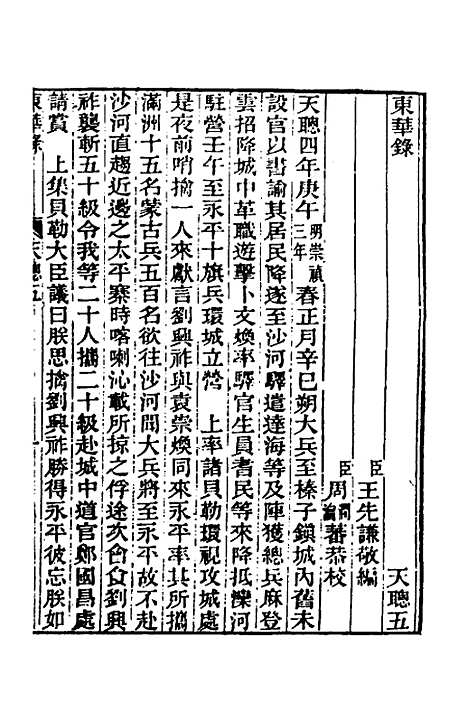 東華錄　天聰五
臣王先謙敬編
臣周潤蕃恭校
天聰四年庚午明崇禎三年春正月辛巳朔大兵至榛子鎭城內舊未
設官以書諭其居民降遂至沙河驛遣達海等及陣獲總兵麻登
雲招降城中革職遊擊卜文煥率驛官生員耆民等來降抵灤河
駐營壬午至永平十旗兵環城立營　上率諸貝勒環視攻城處
是夜前哨擒一人來獻言劉興祚與袁崇煥同來永平率其所攜
滿洲十五名蒙古兵五百名欲往沙河聞大兵將至永平故不赴
沙河直趨近邊之太平寨時喀喇沁載所掠之俘途次台食劉興
祚襲斬五十級令我等二十人攜二十級赴城中道官鄭國昌處
請賞　上集貝勒大臣議曰朕思擒劉興祚勝得永平彼忘朕如
東華錄　天聰五